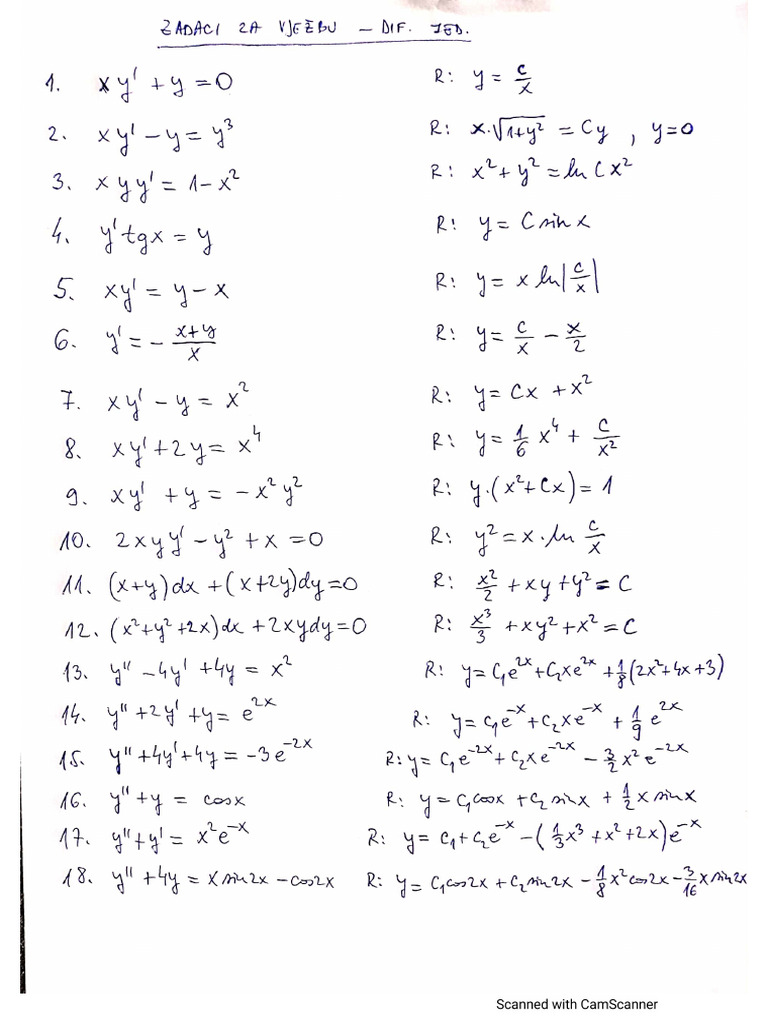 ZADACI ZA VJEŽBU – DIF. JED.
1. xy' + y = 0 R: y = c/x
2. xy' – y = y³ R: x·√(1+y²) = Cy, y=0
3. xyy' = 1–x² R: x² + y² = ln Cx²
4. y' tgx = y R: y = C sin x
5. xy' = y – x R: y = x ln|c/x|
6. y' = – (x+y)/x R: y = c/x – x/2
7. xy' – y = x² R: y = Cx + x²
8. xy' + 2y = x⁴ R: y = 1/6 x⁴ + C/x²
9. xy' + y = –x² y² R: y·(x² + Cx) = 1
10. 2xyy' – y² + x = 0 R: y² = x·ln c/x
11. (x+y)dx + (x+2y)dy = 0 R: x²/2 + xy + y² = C
12. (x² + y² + 2x)dx + 2xydy = 0 R: x³/3 + xy² + x² = C
13. y'' – 4y' + 4y = x² R: y = C₁e²ˣ + C₂xe²ˣ + 1/8(2x² + 4x + 3)
14. y'' + 2y' + y = e²ˣ R: y = c₁e⁻ˣ + c₂xe⁻ˣ + 1/9 e²ˣ
15. y'' + 4y' + 4y = –3e⁻²ˣ R: y = C₁e⁻²ˣ + C₂xe⁻²ˣ – 3/2 x² e⁻²ˣ
16. y'' + y = cosx R: y = C₁cosx + C₂ sinx + 1/2 x sinx
17. y'' + y' = x²e⁻ˣ R: y = C₁ + C₂e⁻ˣ – (1/3 x³ + x² + 2x)e⁻ˣ
18. y'' + 4y = x sin2x – cos2x R: y = C₁cos2x + C₂sin2x – 1/8 x² cos2x – 3/16 x sin2x
Scanned with CamScanner